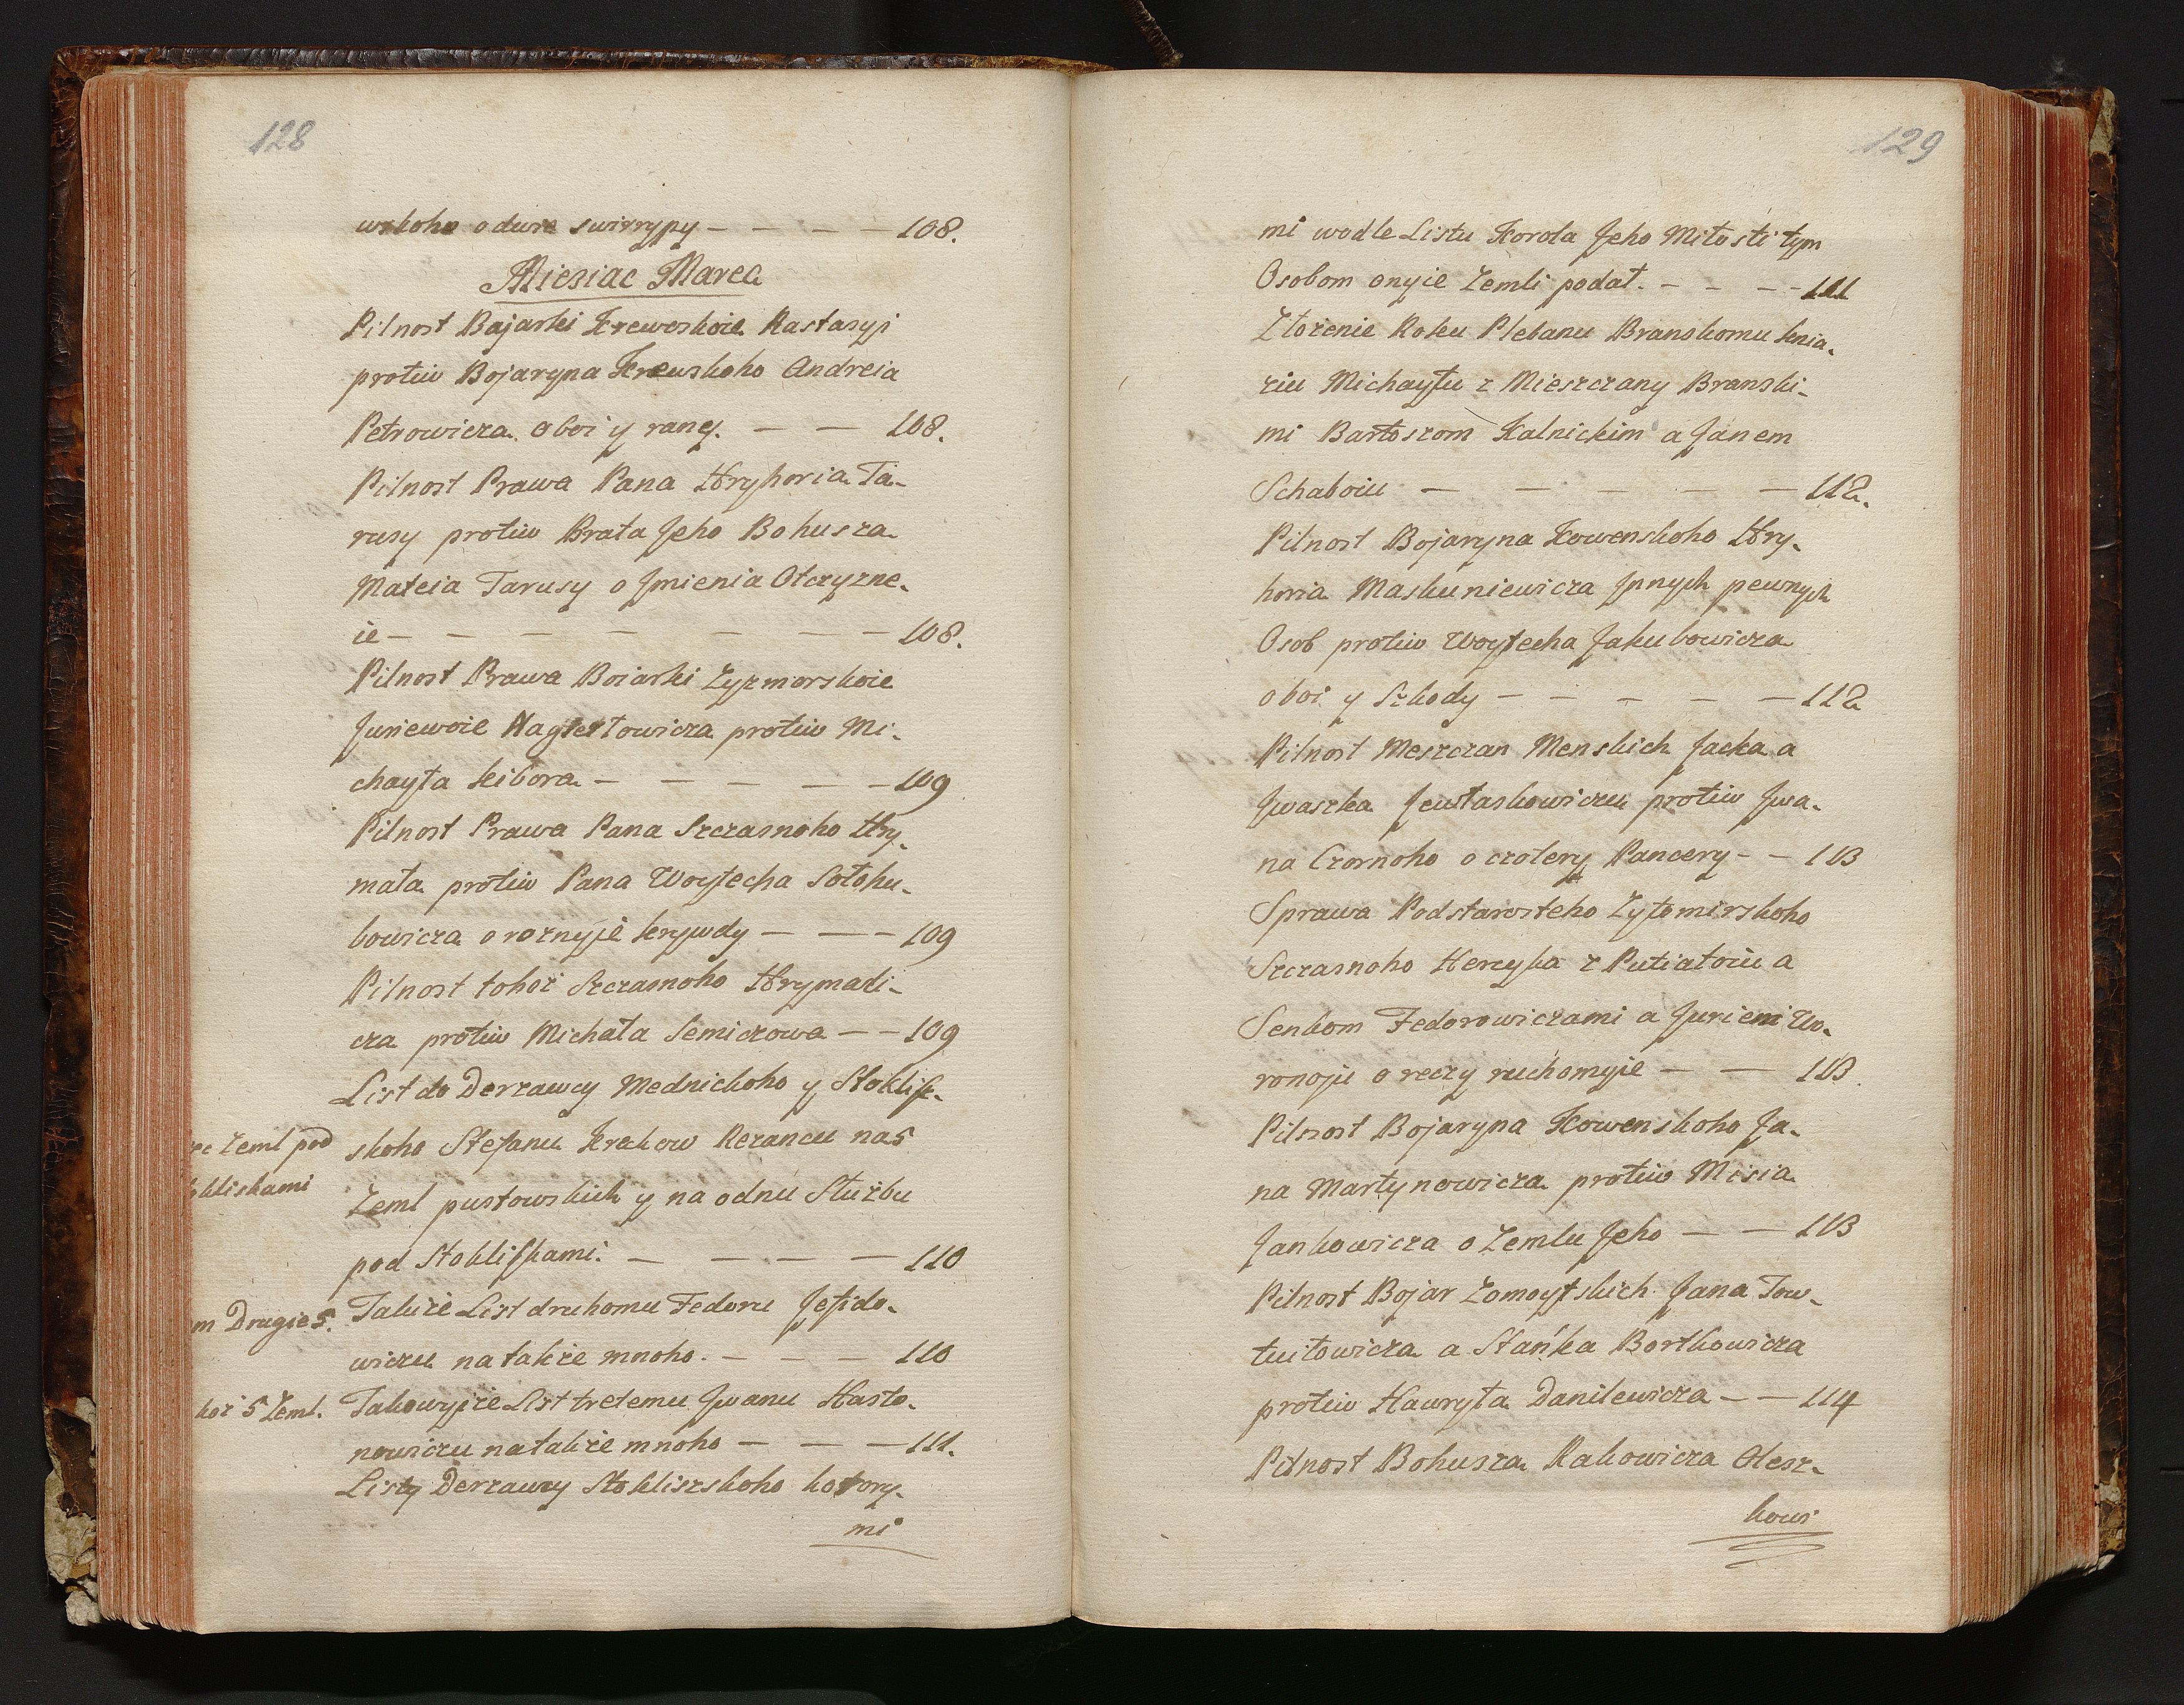 128
wskoho o dwie swirypy - - - - 108.
Miesiac Marca
Pilnost Bajarki Krewskoie Nastasyi
protiw Bojaryna Krewskoho Andreia
Petrowicza o boi y rany. - - 108.
Pilnost Prawa Pana Hryhoria Ta-
rusy protiw Brata Jeho Bohusza
Mateia Tarusy o Jmienia Otczyzne-
ie - - - - - - - 108.
Pilnost Prawa Boiarki Zyzmorskoie
Juriewoie protiw Mi-
chayła Kibora - - - - - 109
Pilnost Prawa Pana Szczasnoho Hry-
mała protiw Pana Woytecha Sołohu-
bowicza o roznyie krywdy - - - 109
Pilnost tohoż Szczasnoho Hrymali-
cza protiw Michała Semiczowa - - 109
List do Derzawcy Mednickoho y Stoklisz-
skoho Stefanu Rezancu na 5
Zeml pustowskich y na odnu Służbu
pod Stokliszkami. - - - - 110
Zeml pod
kliskami
Takiże List druhomu Fedoru
wiczu na także mnoho. - - - 110
m Drugie 5.
Takowyiże List tretemu Jwanu Hasto-
nowiczu na także mnoho - - - 111.
koż 5 Zeml.
Listy Derzawcy Stokliszskoho kotory-
mi
129
mi wodle Listu Korola Jeho Miłosti tym
Osobom onyie Zemli podał. - - - - 111
Złożenie Roku Plebanu Branskomu knia-
ziu Michayłu z Mieszczany Branski-
mi Bartoszom Kalnickim a Janem
Schaboiu - - - - - 112.
Pilnost Bojaryna Kowenskoho Hry-
horia Maskuniewicza Jnnych pewnych
Osob protiw Woytecha Jakubowicza
o boi y Szkody - - - - - 112
Pilnost Meszczan Menskich Jacka a
Jwaszka Jewtaskowiczu protiw Jwa-
na Czornoho o cztery Pancery - - 113
Sprawa Podstarosteho Zytomirskoho
Szczasnoho Hercyka z Putiatoiu a
Senkom Fedorowiczami a Juriem Wo-
ronoju o reczy ruchomyie - - 113.
Pilnost Bojaryna Kowenskoho Ja-
na Martynowicza protiw Misia
Jankowicza o Zemlu Jeho - - 113
Pilnost Bojar Zomoytskich Jana Tow-
tuitowicza a Stańka Bortkowicza
protiw Hawryła Danilewicza - - 114
Pilnost Bohusza Rakowicza Olesz-
kowi